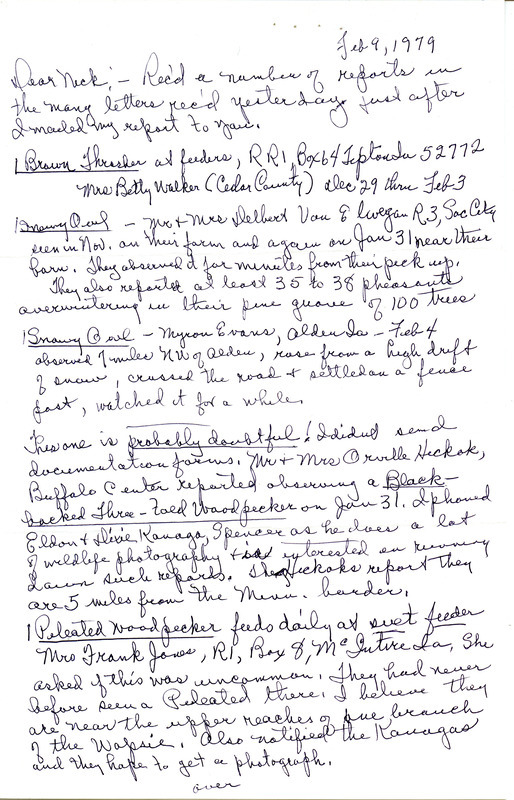 Feb 9, 1979
Dear Nick: - Rec'd a number of reports in
the many letters rec'd yesterday just after
I mailed my report to you.
1 Brown Thrasher at feeders, RR1, Box 64 Tipton Ia 52772
Mrs Betty Walker (Cedar County) Dec 29 thru Feb 3
1 Snowy Owl - Mr + Mrs Delbert Van E R3, Sac City
seen in Nov. on their farm and again on Jan 31 near their
barn. They observed it for minutes from their pick up.
They also reported at least 35 to 38 pheasants
overwintering in their pine grove of 100 trees
1 Snowy Owl - Myron Evans, Alden Ia - Feb 4
observed 7 miles NW of Alden, rose from a high drift
of snow, crossed the road + settled on a fence
post, watched it for a while.
This one is probably doubtful! I didnt send
documentation forms. Mr + Mrs Orville Hickok,
Buffalo Center reported observing a Black-
backed Three-Toed Woodpecker on Jan 31. I phoned
Eldon + Dixie Kanaga, Spencer as he does a lot
of wildlife photography + interested in running
down such reports. The Hickoks report they
are 5 miles from the Minn. border.
1 Pileated Woodpecker feeds daily at suet feeder
Mrs Frank Jones, R1, Box 8, McIntire Ia, She
asked if this was uncommon. They had never
before seen a Pileated there. I believe they
are near the upper reaches of one branch
of the Wapsie. Also notified the Kanagas
and they hope to get a photograph.
over